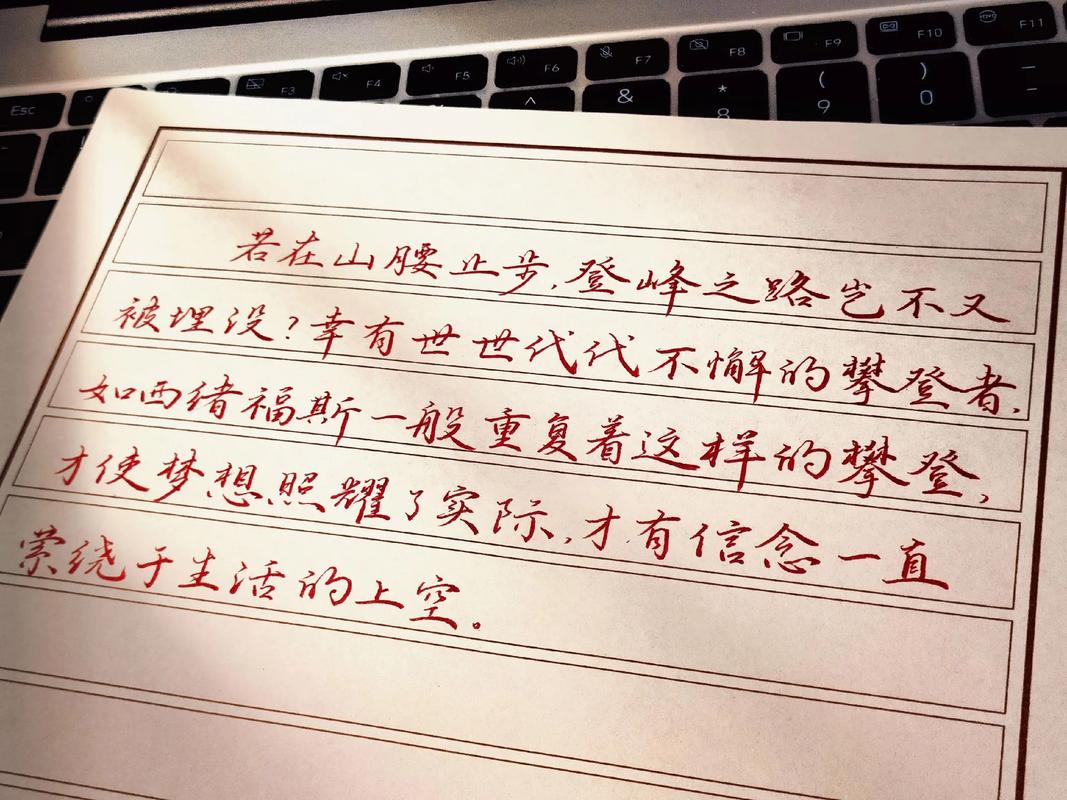 Esc F3 F4 F5 F6 F7 F8 F9 F10 F11
^ & * 8 ( 9 ) 0 _ -
若在山腰止步,登峰之路岂不又
被埋没?幸有世世代代不懈的攀登者,
如西绪福斯一般重复着这样的攀登,
才使梦想照耀了实际,才有信念一直
萦绕于生活的上空。